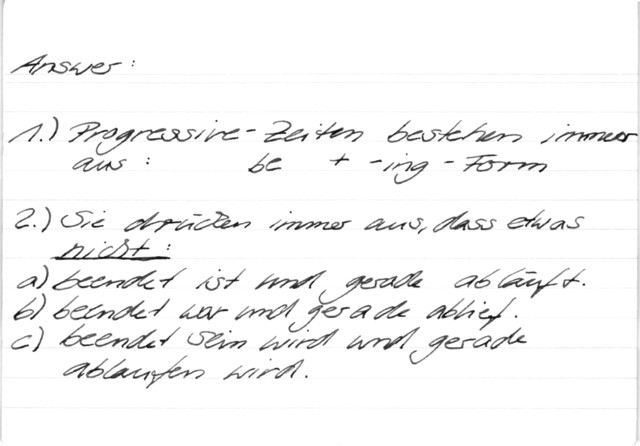 Answer:
1.) Progressive-Zeiten bestehen immer
aus: be + -ing-Form
2.) Sie drücken immer aus, dass etwas
nicht:
a) beendet ist und gerade abläuft.
b) beendet war und gerade ablief.
c) beendet sein wird und gerade
ablaufen wird.